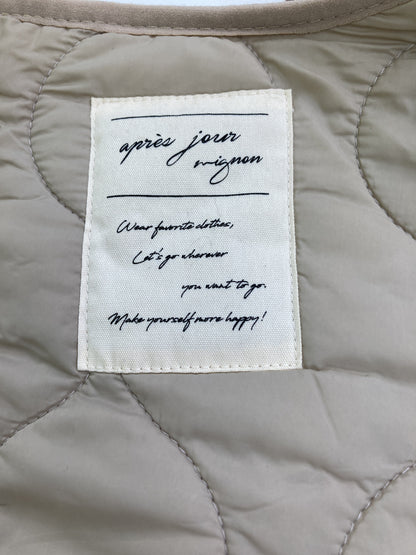 après jour
mignon
Wear favorite clothes,
Let's go wherever
you want to go.
Make yourself more happy!